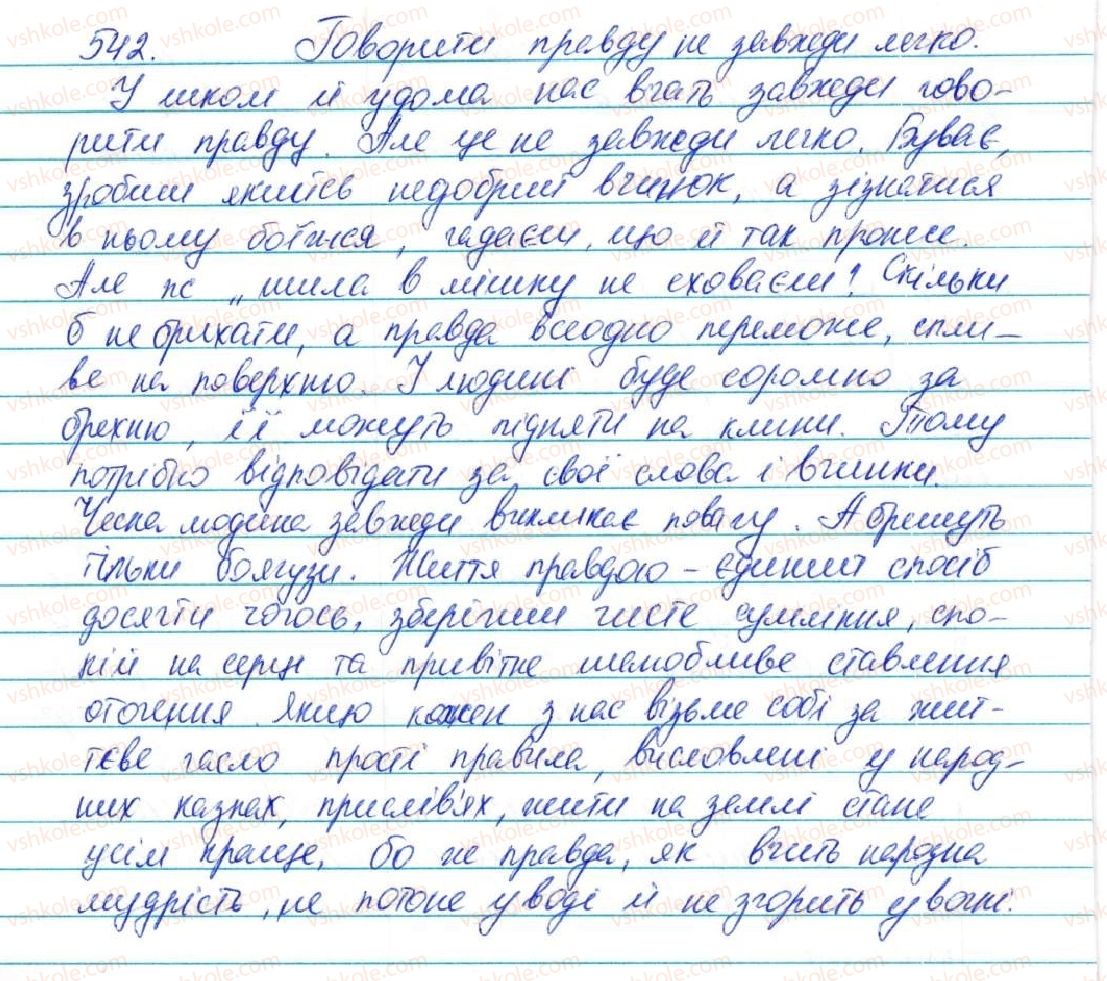 542. Говорити правду не завжди легко.
У школі й удома нас вчать завжди гово-
рити правду. Але це не завжди легко. Буває,
зробиш якийсь недобрий вчинок, а зізнатися
в ньому боїшся, гадаєш, що й так промине.
Але ж „шила в мішку не сховаєш! Скільки
б не брехати, а правда всеодно переможе, спли-
ве на поверхню. І людині буде соромно за
брехню, її можуть підняти на клини. Тому
потрібно відповідати за свої слова і вчинки.
Чесна людина завжди викликає повагу. А брешуть
тільки боягузи. Життя правдою - єдиний спосіб
досягти чогось, зберігши чисте сумління, спо-
кій на серці та привітне шанобливе ставлення
оточення. Якщо кожен з нас візьме собі за жит-
тєве гасло прості правила, висловлені у народ-
них казках, прислів'ях, жити на землі стане
усім краще, бо ж правда, як вчить народна
мудрість, не потоне у воді й не згорить у вогні.